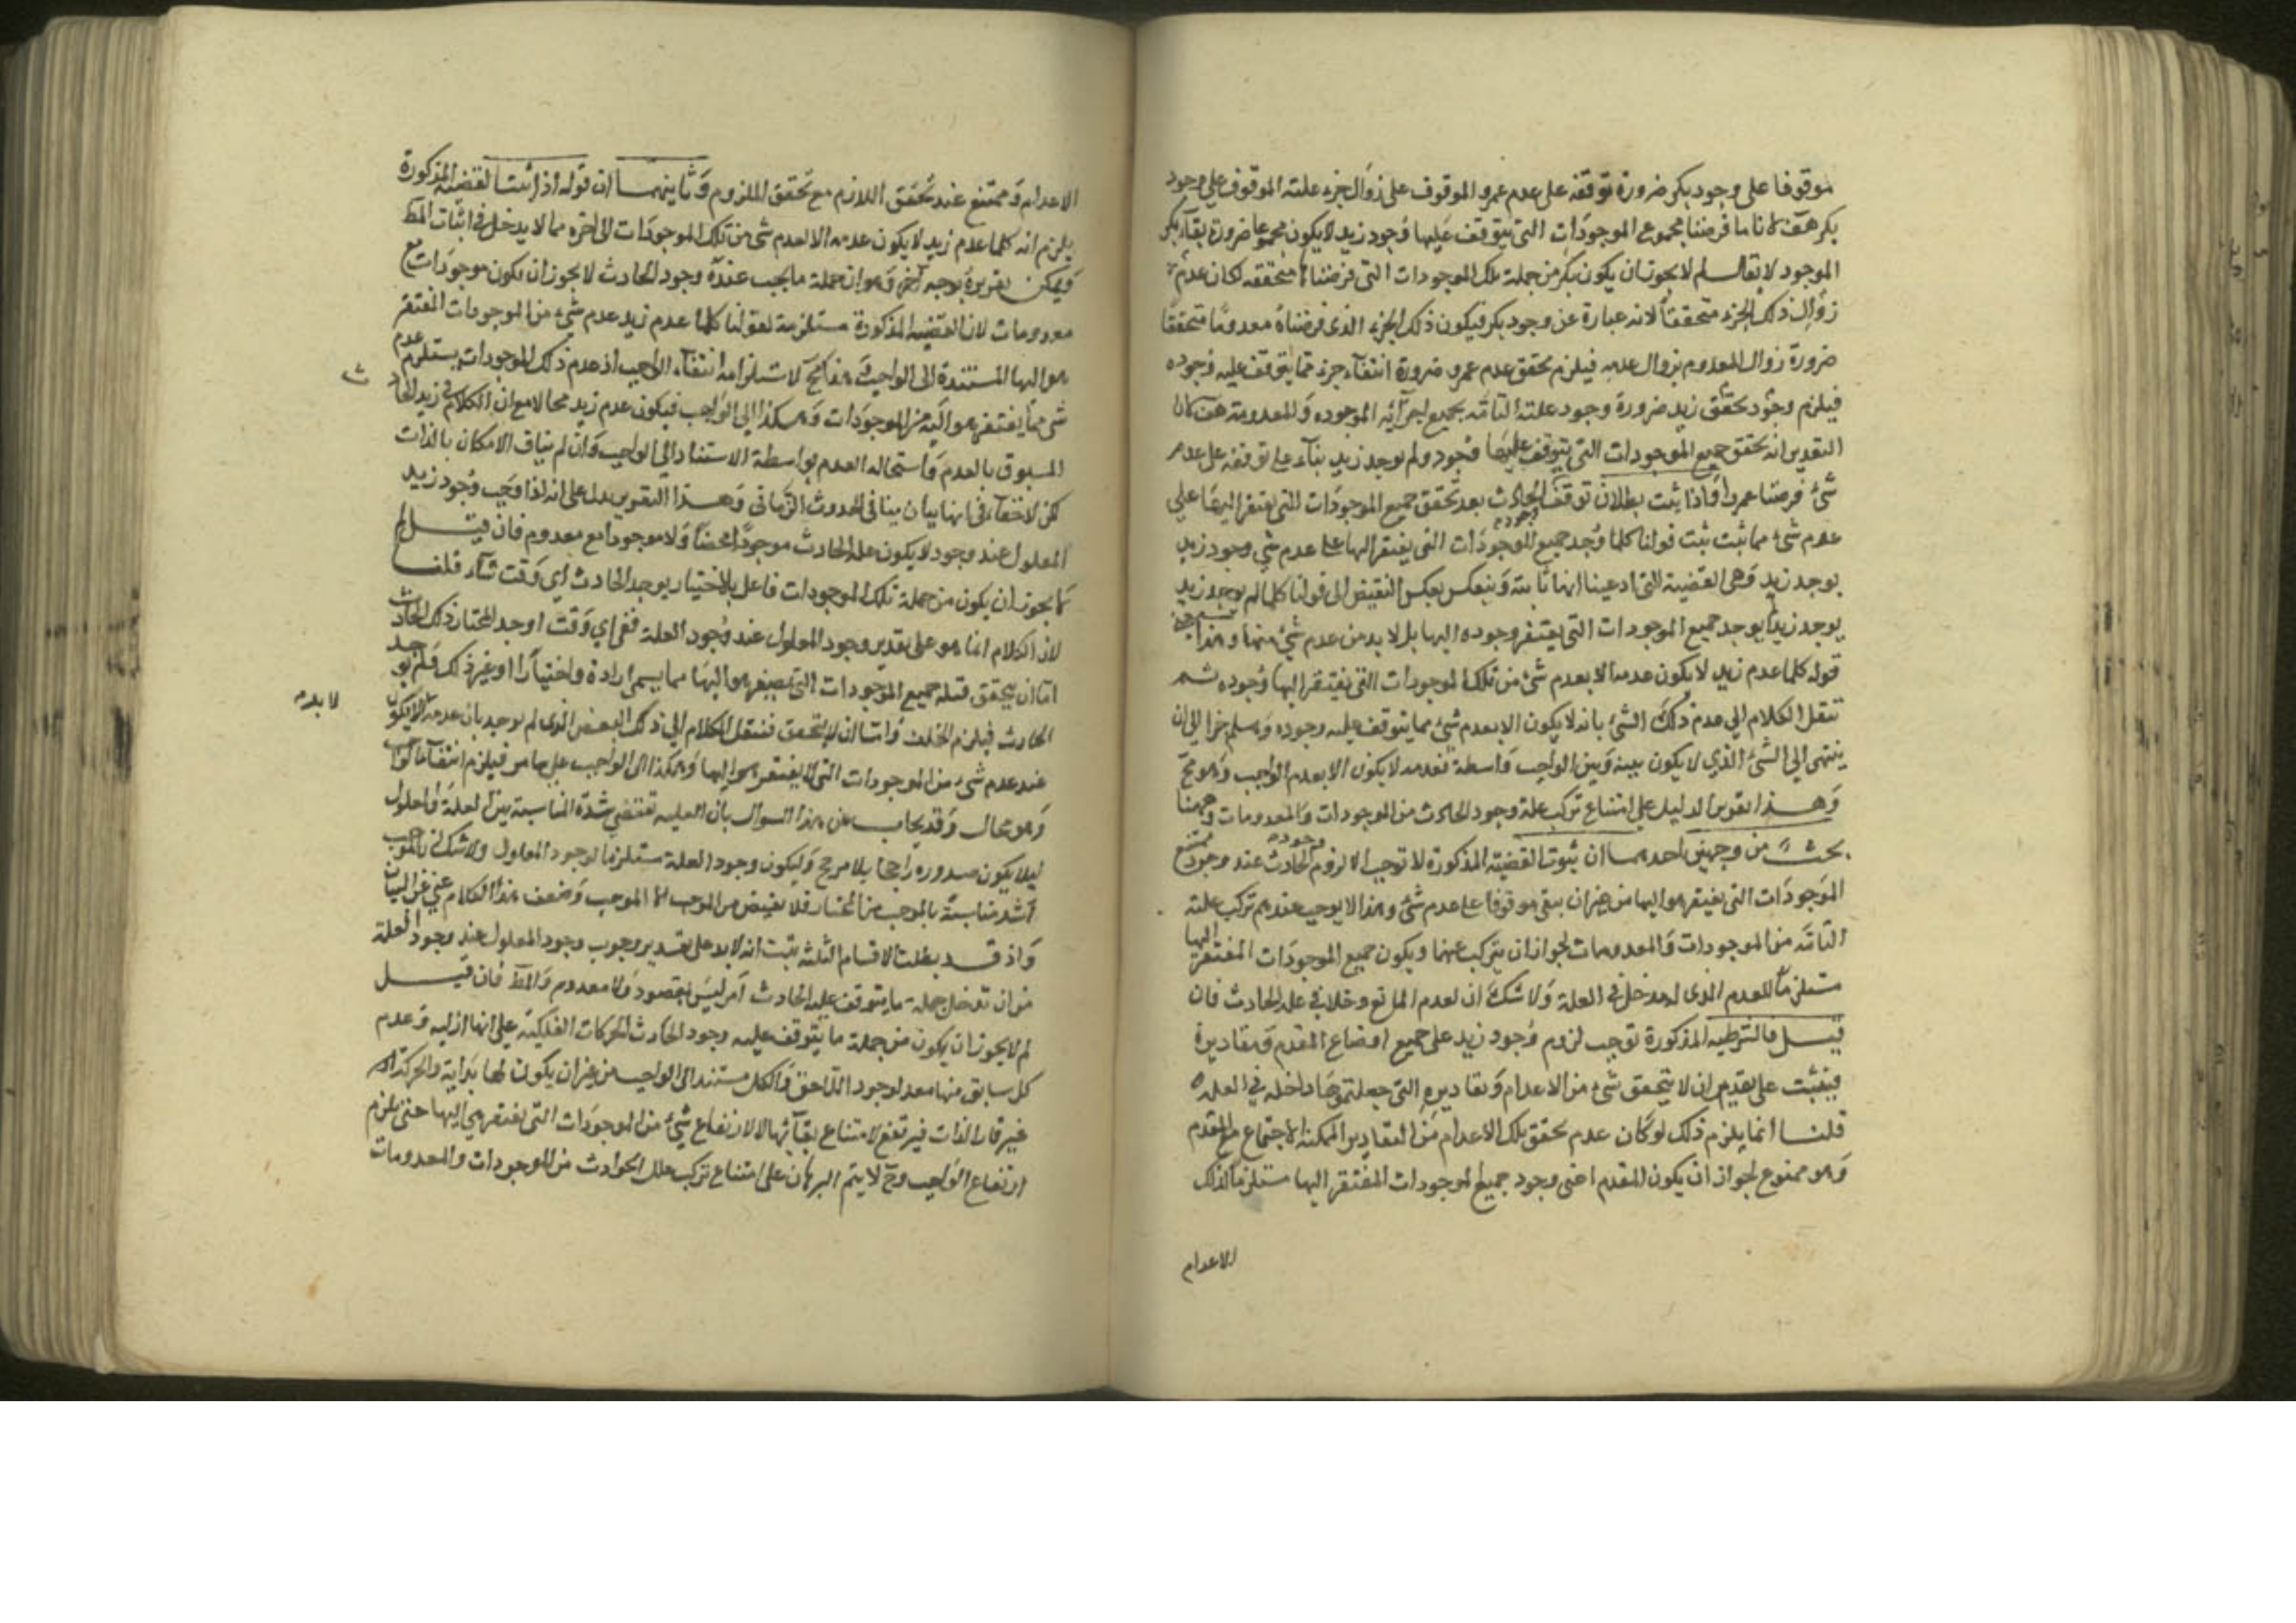 موقوفا على وجود بكر ضرورة توقفه على عدم عمرو الموقوف على زوال جزء علته الموقوف على وجود
بكر هف لانا ما فرضنا مجموع الموجودات التي يتوقف عليها وجود زيد لا يكون مجموعا ضرورة بقاء بكر
الموجود لا يقال لم لا يجوز ان يكون بكر من جملة تلك الموجودات التي فرضناها متحققه لكان عدم
زوال ذلك الجزء متحققا لانه عبارة عن وجود بكر فيكون ذلك الجزء الذي فرضناه معدوما متحققا
ضرورة زوال المعدوم بزوال عدمه فيلزم تحقق عدم عمرو ضرورة انتفاء جزء مما يتوقف عليه وجوده
فيلزم وجود تحقق زيد ضرورة وجود علته التامه بجميع اجزائه الموجوده والمعدومة هف لان
التقدير انه تحقق جميع الموجودات التي يتوقف عليها وجود ولم يوجد زيد بناء على توقفه على عدم
شئ فرضنا عمروا فاذا ثبت بطلان توقف الحادث بعد تحقق جميع الموجودات التي يفتقر اليها على
عدم شئ مما ثبت ثبت قولنا كلما وجد جميع الموجودات التي يفتقر اليها على عدم شئ وجود زيد
يوجد زيد وهي القضية التي ادعينا انها ثابتة وينعكس بعكس النقيض الى قولنا كلما لم يوجد زيد
يوجد زيد يوجد جميع الموجودات التي يفتقر وجوده اليها بل لا بد من عدم شئ منها وهذا
قوله كلما عدم زيد لا يكون عدمه الا بعدم شئ من تلك الموجودات التي يفتقر اليها وجوده ثم
ننقل الكلام الى عدم ذلك الشئ بانه لا يكون الا بعدم شئ مما يتوقف عليه وجوده وهلم جرا الى ان
ينتهي الى الشئ الذي لا يكون بينه وبين الواجب واسطة فعدمه لا يكون الا بعدم الواجب وهو مح
وهذا تقرير الدليل على امتناع تركب علة وجود الحادث من الموجودات والمعدومات وههنا
بحث من وجهين احدهما ان ثبوت القضية المذكورة لا توجب الا لزوم وجود الحادث عند وجود جميع
الموجودات التي يفتقر هو اليها من غير ان يبقى موقوفا على عدم شئ وهذا لا يوجب عدم تركب علته
التامه من الموجودات والمعدومات لجواز ان يتركب عنهما ويكون جميع الموجودات المفتقر اليها
مستلزما للعدم الذي له مدخل في العلة ولا شك ان لعدم المانع دخلا في علة الحادث فان
قيل فالشرطيه المذكورة توجب لزوم وجود زيد على جميع اوضاع المقدم وتقاديره
فيثبت على تقدير ان لا يتحقق شئ من الاعدام وتقاديره التي جعلتموها داخله في العله
قلنا انما يلزم ذلك لو كان عدم تحقق تلك الاعدام من التقادير الممكنة الاجتماع مع المقدم
وهو ممنوع لجواز ان يكون المقدم اعني وجود جميع الموجودات المفتقر اليها مستلزما لذلك
الاعدام
الاعدام وممتنع عند تحقق اللازم مع تحقق الملزوم وثانيهما ان قوله اذ اثبتنا القضية المذكورة
يلزم انه كلما عدم زيد لا يكون عدمه الا لعدم شئ من تلك الموجودات الى اخره مما لا يدخل في اثبات المط
ويمكن تقريره بوجه آخر وهو ان جملة ما يجب عنده وجود الحادث لا يجوز ان يكون موجودات مع
معدومات لان القضية المذكورة مستلزمة لقولنا كلما عدم زيد عدم شئ من الموجودات المفتقر
هو اليها المستندة الى الواجب وهذا مح لاستلزامه انتفاء الواجب اذ عدم ذلك الموجودات يستلزم عدم
شئ مما يفتقر هو اليه من الموجودات وهكذا الى الواجب فيكون عدم زيد محالا مع ان الكلام في زيد الحادث
المسبوق بالعدم واستحاله العدم بواسطة الاستناد الى الواجب وان لم يناف الامكان بالذات
لكن لا خفاء في انها ينافي الحدوث الزماني وهذا التقرير يدل على انه اذا وجب وجود زيد
المعلول عند وجود لا يكون علة الحادث موجودا محضا ولا موجودا مع معدوم فان قيل لم
لا يجوز ان يكون من جملة تلك الموجودات فاعل بالاختيار يوجد الحادث اي وقت شاء قلنا
لان الكلام انما هو على تقدير وجود المعلول عند وجود العلة ففي اي وقت اوجد المختار ذلك الحادث
اما ان يتحقق قبله جميع الموجودات التي يفتقر هو اليها مما يسمى ارادة واختيارا او غير ذلك فلم يوجد
الحادث فيلزم الخلف واما ان لا يتحقق فننقل الكلام الى ذلك البعض الذي لم يوجد بان عدمه لا يكون
لا بد م
عند عدم شئ من الموجودات التي يفتقر هو اليها وهكذا الى الواجب على ما مر فيلزم انتفاء الواجب
وهو محال وقد يجاب عن هذا السوال بان العليه تقتضي شدة المناسبة بين العلة والمعلول
ليلا يكون صدوره راجحا بلا مرجح وليكون وجود العلة مستلزما لوجود المعلول ولا شك ان الموجب
اشد مناسبة بالموجب من المختار فلا يفيض من الموجب الا الموجب وضعف هذا الكلام غني عن البيان
واذ قد بطلت الاقسام الثلثة يثبت انه لا بد على تقدير وجوب وجود المعلول عند وجود العلة
من ان تدخل جملة ما يتوقف عليه الحادث امر ليس بمقصود ولا معدوم والمط فان قيل
لم لا يجوز ان يكون من جملة ما يتوقف عليه وجود الحادث الحركات الفلكية على انها ازليه وعدم
كل سابق منها معد لوجود اللاحق والكل مستند الى الواجب من غير ان يكون لها بداية والحركة امر
غير قار الذات فيرتفع لامتناع بقائها لا لارتفاع شئ من الموجودات التي يفتقر هي اليها حتى يلزم
ارتفاع الواجب وح لا يتم البرهان على امتناع تركب علل الحوادث من الموجودات والمعدومات